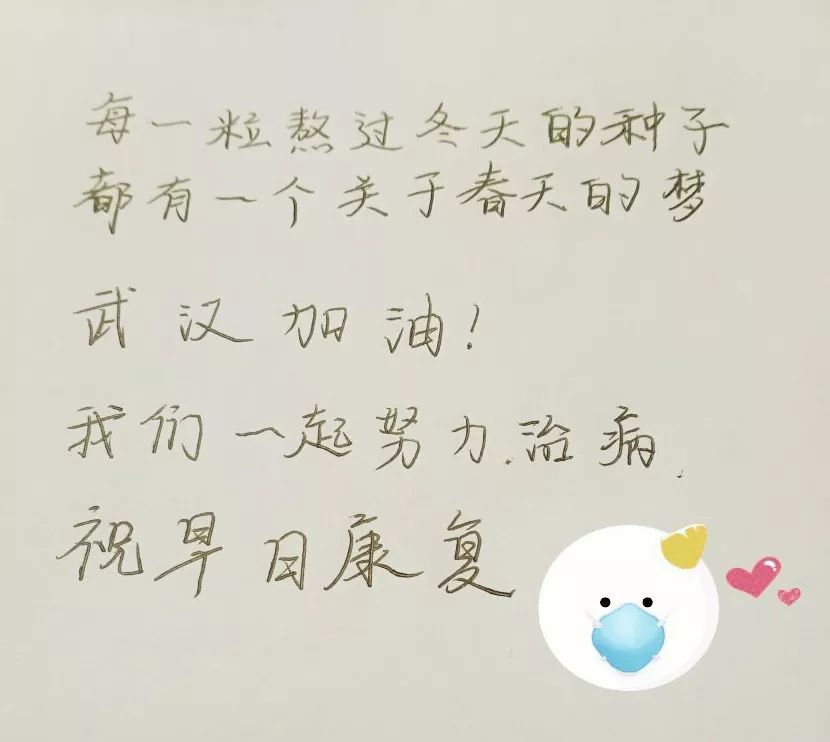 每一粒熬过冬天的种子
都有一个关于春天的梦
武汉加油！
我们一起努力.治病.
祝早日康复